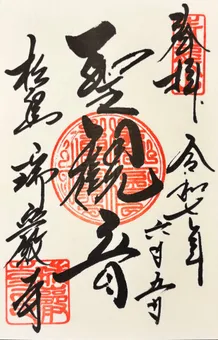 奉拝
令和七年
六月五日
聖観音
松島
瑞巌寺